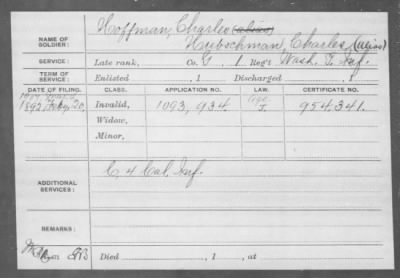 NAME OF SOLDIER: Hoffman, Charles (alias)
Hubschman, Charles, (alias)
SERVICE: Late rank, Co. G, 1 Reg't Wash. T. Inf.
TERM OF SERVICE: Enlisted , 1 Discharged , 1
DATE OF FILING. CLASS. APPLICATION NO. LAW. CERTIFICATE NO.
1892, 20, Invalid, 1093,934. 954,341.
Widow,
Minor,
ADDITIONAL SERVICES: C 4 Cal. Inf.
REMARKS:
Died , 1 , at